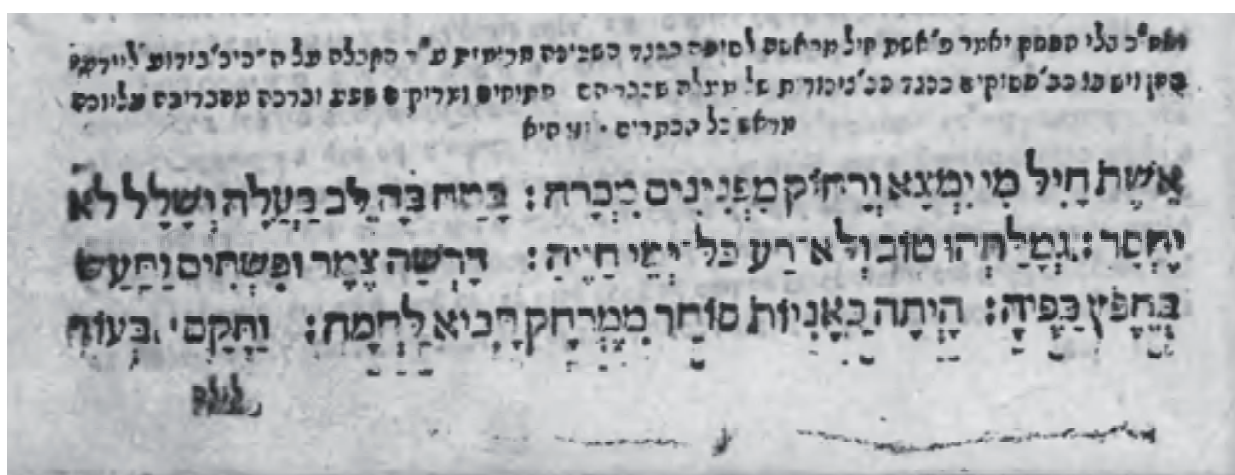 ואח"כ בלי הפסק יאמר פ' אשת חיל מראשה לסופה כנגד השכינה תתאה ע"ד הקבלה על ה
ויש בו כ"ב פסוקים כנגד כ"ב צינורות של מעלה שנברא בהם פתוחים ומריקים שפע וברכה
מראש כל הכתרים · וזו היא
אֵשֶׁת חַיִל מִי יִמְצָא וְרָחוֹק מִפְּנִינִים מִכְרָהּ : בָּטַח בָּהּ לֵב בַּעְלָהּ וְשָׁלָל לֹא
יֶחְסָר : גְּמָלַתְהוּ טוֹב וְלֹא־רָע כֹּל־יְמֵי חַיֶּיהָ : דָּרְשָׁה צֶמֶר וּפִשְׁתִּים וַתַּעַשׂ
בְּחֵפֶץ כַּפֶּיהָ : הָיְתָה כָּאֳנִיּוֹת סוֹחֵר מִמֶּרְחָק תָּבִיא לַחְמָהּ : וַתָּקָם בְּעוֹד
לילה